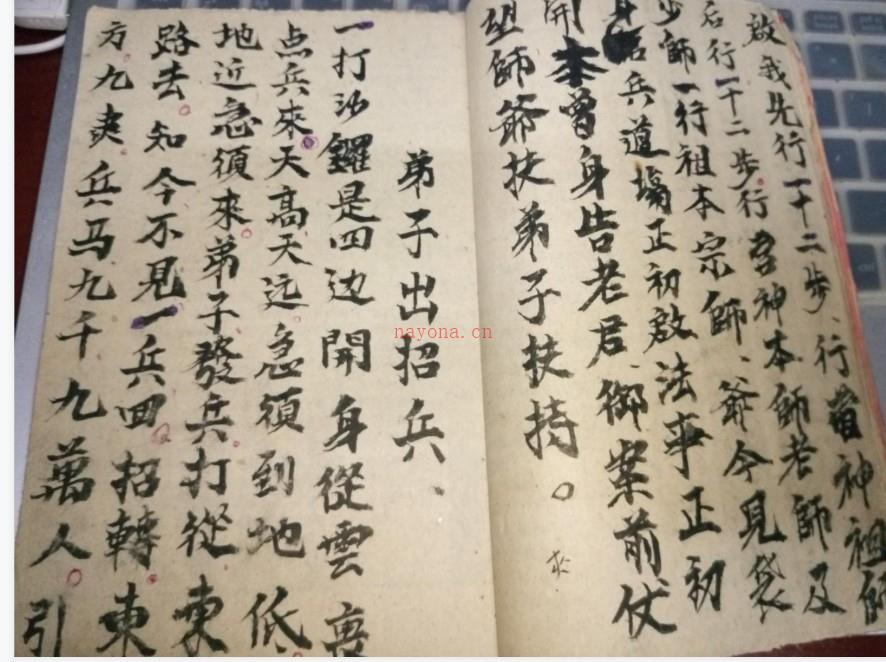 啟我先行一十二步、行神祖師
后行一十二步。行神本師老師及
少師一行祖本宗師、爺今見袋
身招兵道塲正初啟法事正初
開本曾身告老君、御案前仗
祖師爺扶弟子扶持。
弟子出招兵、
一打沙鑼是四边開身從雲
点兵來。天高天远急須到地低。
地近急須來。弟子發兵。打從東
路去。知今不見一兵回。招轉。東
方九夷兵马九千九萬人。引
nayona.cn